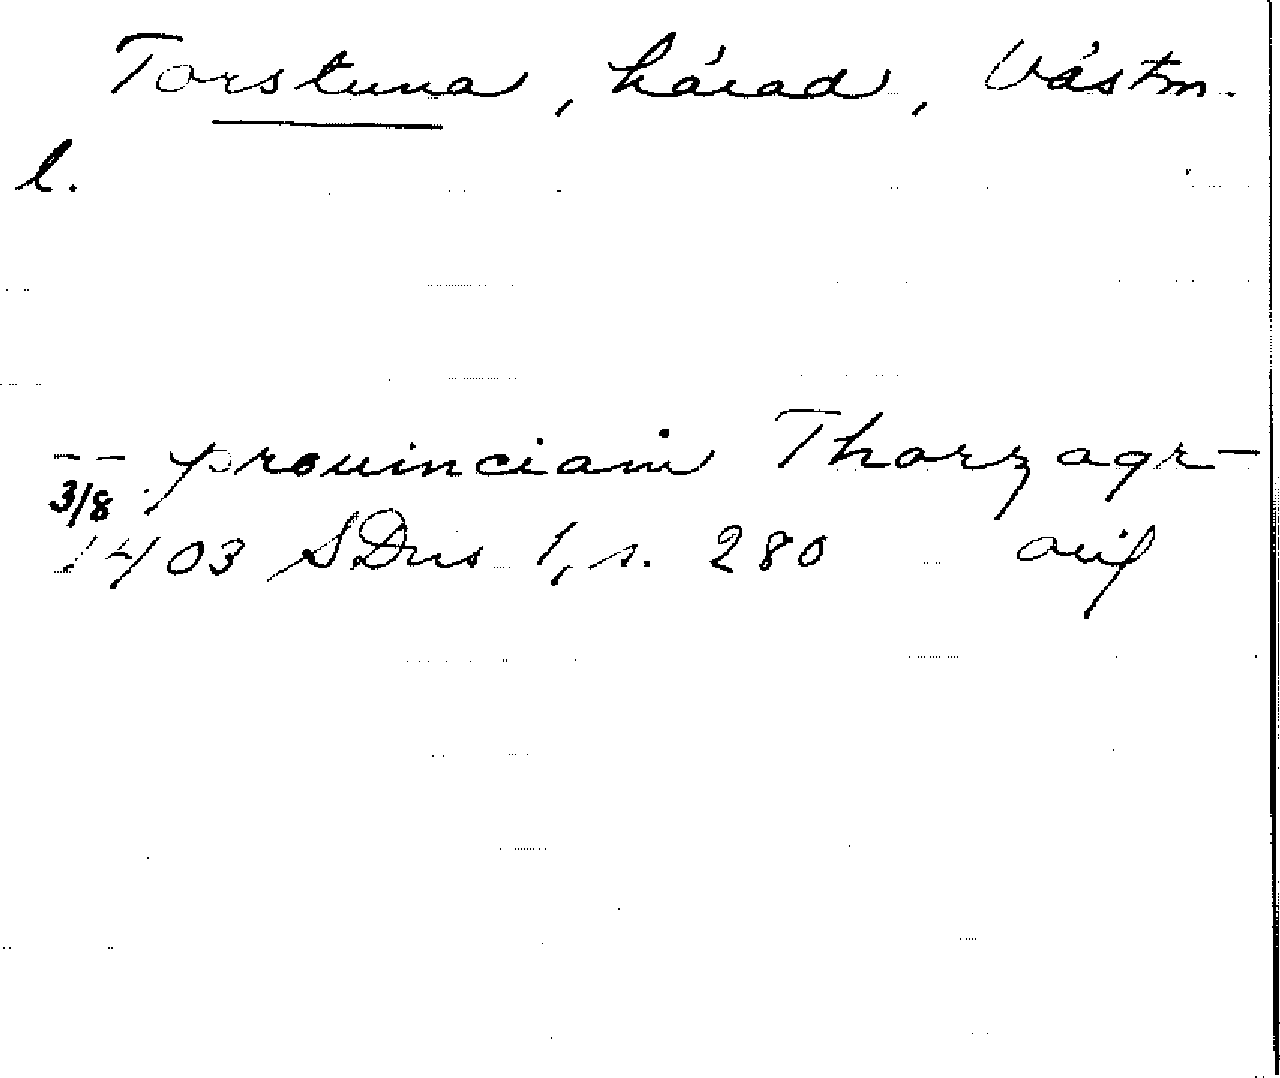 Torstuna, härad, Västm.
l.
-- prouinciam Thorzagr-
3/8
1403 SDns 1, s. 280 avif